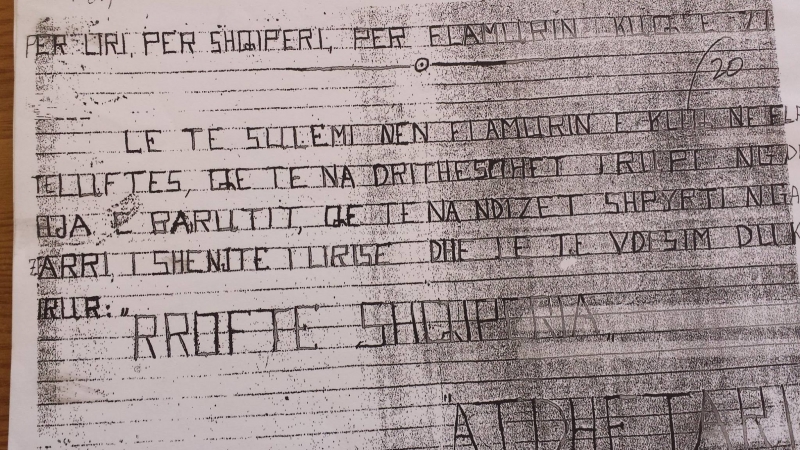 PER LIRI, PER SHQIPERI, PER FLAMURIN KUQ E ZI
20
LE TE SULEMI NEN FLAMURIN E KUQ NE FL
TE LUFTES, QE TE NA DRITHESOHET TRUPI NGD
E BARUTIT, QE TE NA NDIZET SHPYRTI NGA
ZARRI, I SHENJTE I LIRISE DHE TE TE VDISIM DUK
RUR: "
RROFTE SHQIPERIA "
"ATDHETARI